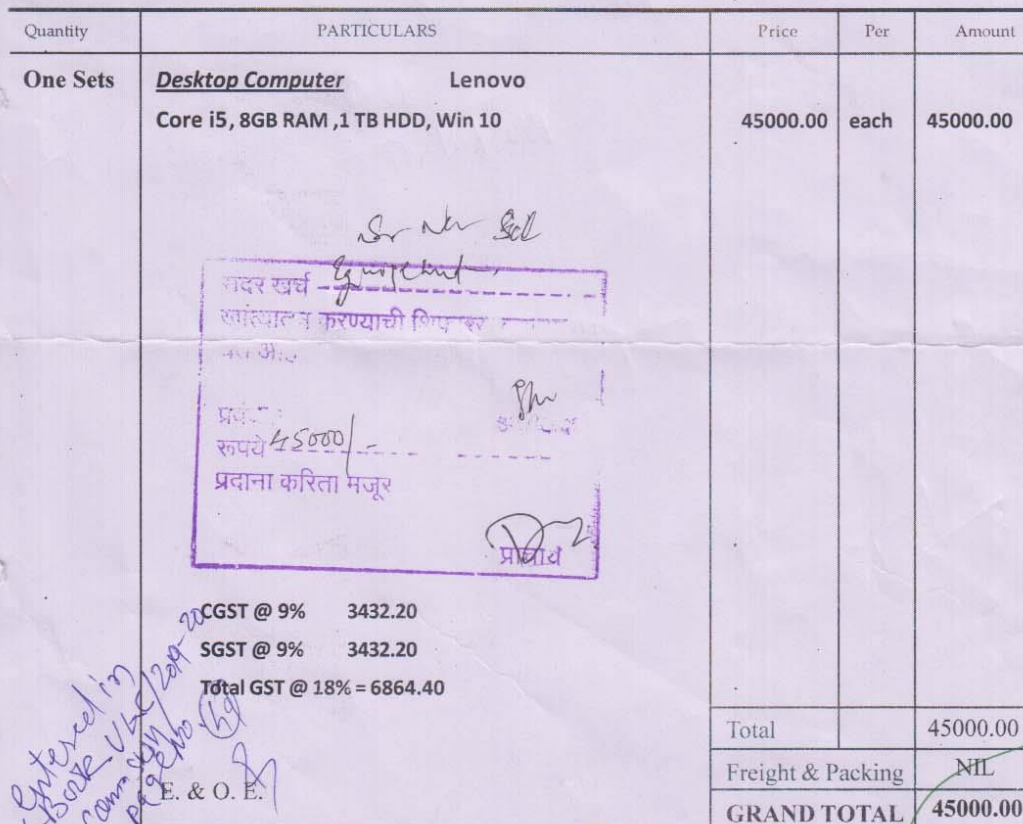 Quantity PARTICULARS Price Per Amount
One Sets Desktop Computer Lenovo
Core i5, 8GB RAM ,1 TB HDD, Win 10 45000.00 each 45000.00
सदर खर्च
करण्याची
रूपये 45000/-
प्रदाना करिता मजूर
प्राचार्य
CGST @ 9% 3432.20
SGST @ 9% 3432.20
Total GST @ 18% = 6864.40
Entered in
Book 2019-20
page No. 59
E. & O. E.
Total 45000.00
Freight & Packing NIL
GRAND TOTAL 45000.00